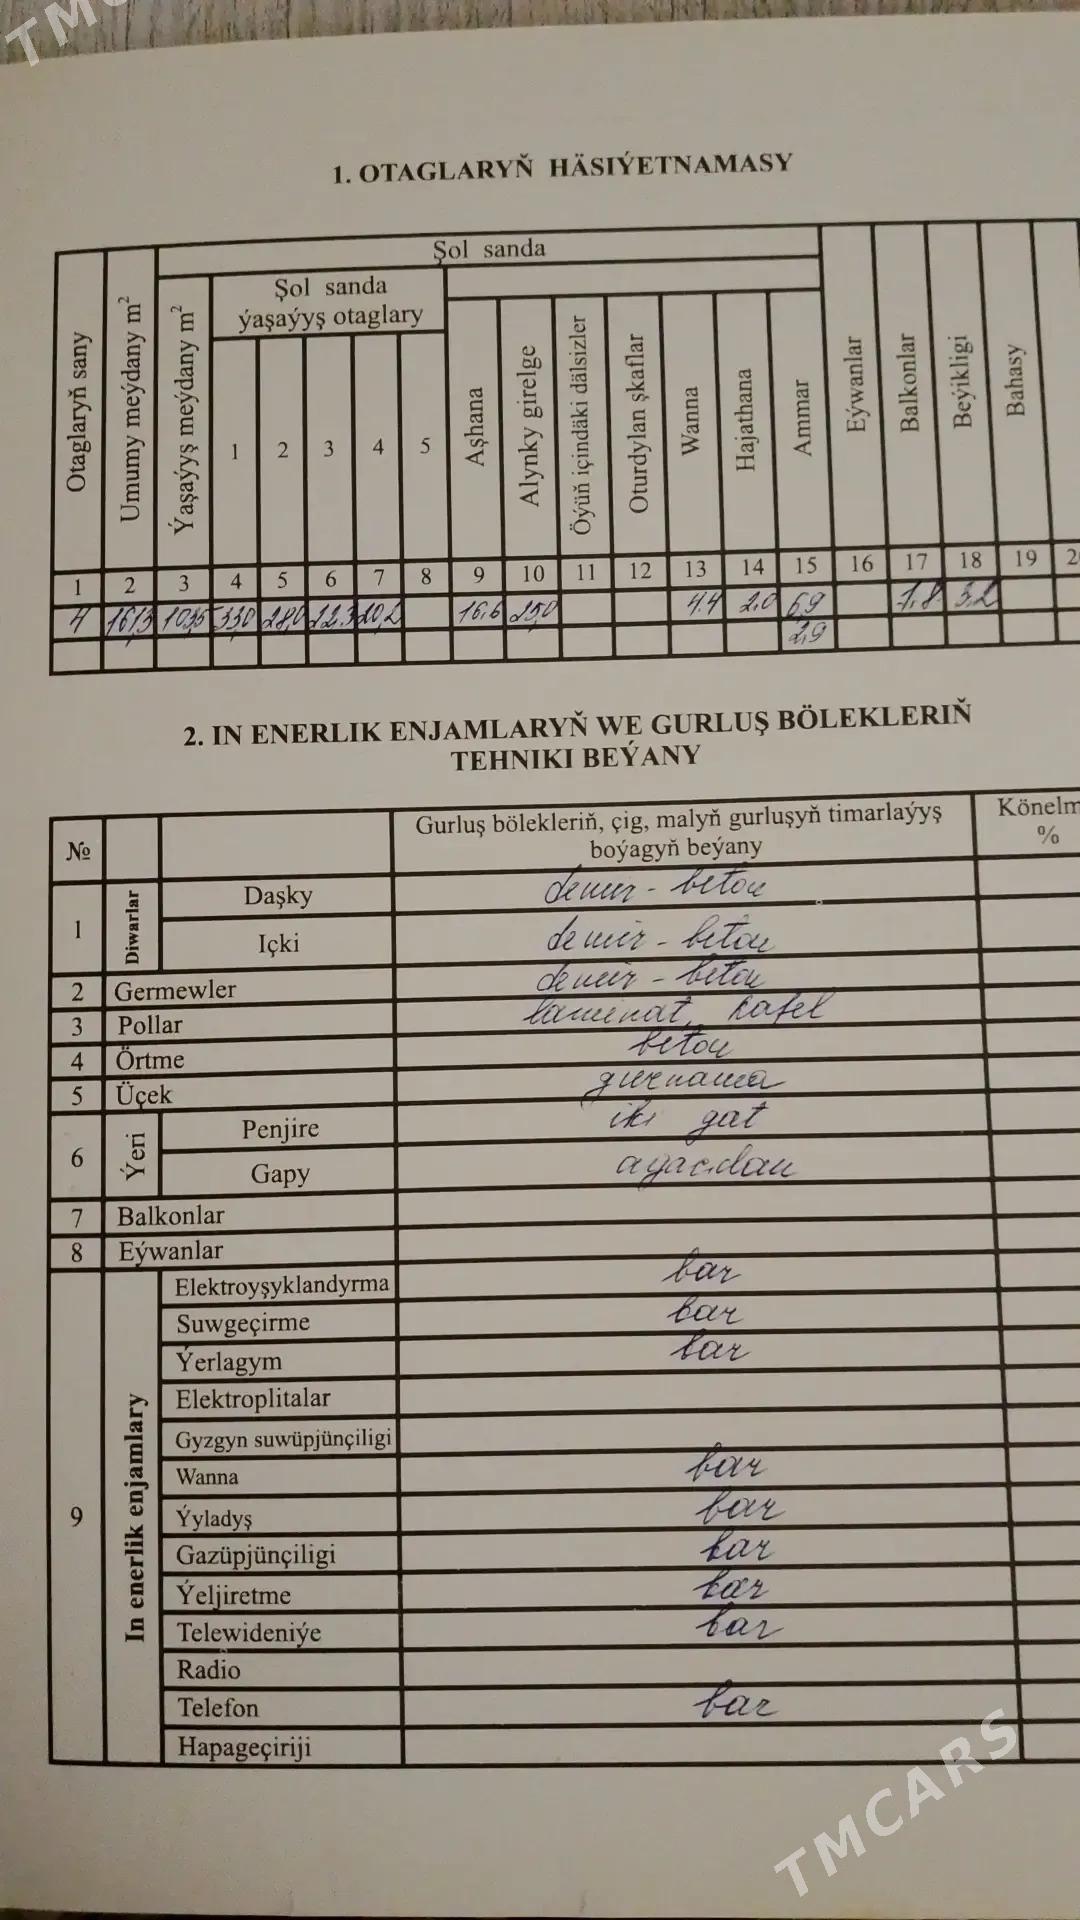 TMC
1. OTAGLARYŇ HÄSIÝETNAMASY
Şol sanda
Şol sanda
ýaşaýyş otaglary
Otaglaryň sany
Umumy meýdany m²
Ýaşaýyş meýdany m²
1 2 3 4 5
Aşhana
Alynky girelge
Öýüň içindäki dälsizler
Oturdylan şkaflar
Wanna
Hajathana
Ammar
Eýwanlar
Balkonlar
Beýikligi
Bahasy
1 2 3 4 5 6 7 8 9 10 11 12 13 14 15 16 17 18 19
4 161,3 103,5 33,0 28,0 22.3 20,2 16.6 25,0 4.4 2.0 6,9 7.8 3.2
2,9
2. IN ENERLIK ENJAMLARYŇ WE GURLUŞ BÖLEKLERIŇ
TEHNIKI BEÝANY
№ Gurluş bölekleriň, çig, malyň gurluşyň timarlaýyş Könelm
boýagyň beýany %
1 Diwarlar Daşky demir - beton
Içki demir - beton
2 Germewler demir - beton
3 Pollar laminat, kafel
4 Örtme beton
5 Üçek gurnama
6 Ýeri Penjire iki gat
Gapy agaçdan
7 Balkonlar
8 Eýwanlar
9 In enerlik enjamlary
Elektroyşyklandyrma bar
Suwgeçirme bar
Ýerlagym bar
Elektroplitalar
Gyzgyn suwüpjünçiligi
Wanna bar
Ýyladyş bar
Gazüpjünçiligi bar
Ýeljiretme bar
Telewideniýe bar
Radio
Telefon bar
Hapageçiriji
TMCARS